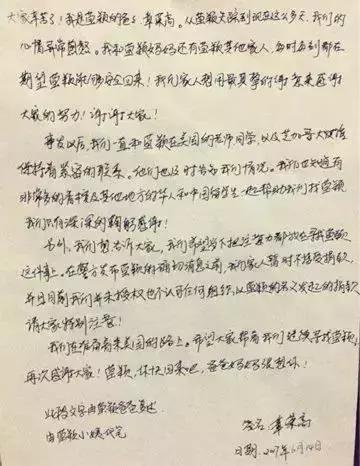 大家辛苦了！我是莹颖的爸爸章荣高。从莹颖失踪到现在这么多天，我们的
心情非常焦急。我和莹颖妈妈还有莹颖其他家人，每时每刻都在
期望莹颖能够安全回来！我们家人想用最真挚的谢意来感谢
大家的努力！谢谢大家！
事发以后，我们一直和莹颖在美国的老师同学，以及芝加哥大使馆
保持有紧密的联系，他们也及时告知我们情况。我们也知道有
非常多的香槟及其他地方的华人和中国留生一起帮助我们找莹颖
我们只有深深的鞠躬感谢！
另外，我们想告诉大家，我们希望当下把注意力都放在寻找莹颖
这件事上，在警方发布莹颖的确切消息之前，我们家人暂时不接受捐款，
并且目前我们并未授权也不认可任何组织以莹颖的名义发起的捐款
请大家特别注意！
我们在准备着来美国的路上。希望大家帮着我们继续寻找莹颖，
再次感谢大家！莹颖，你快回来吧，爸爸妈妈很想你！
此篇文字由莹颖爸爸口述
由莹颖小姨代写
签名 章荣高
日期 2017年6月14日